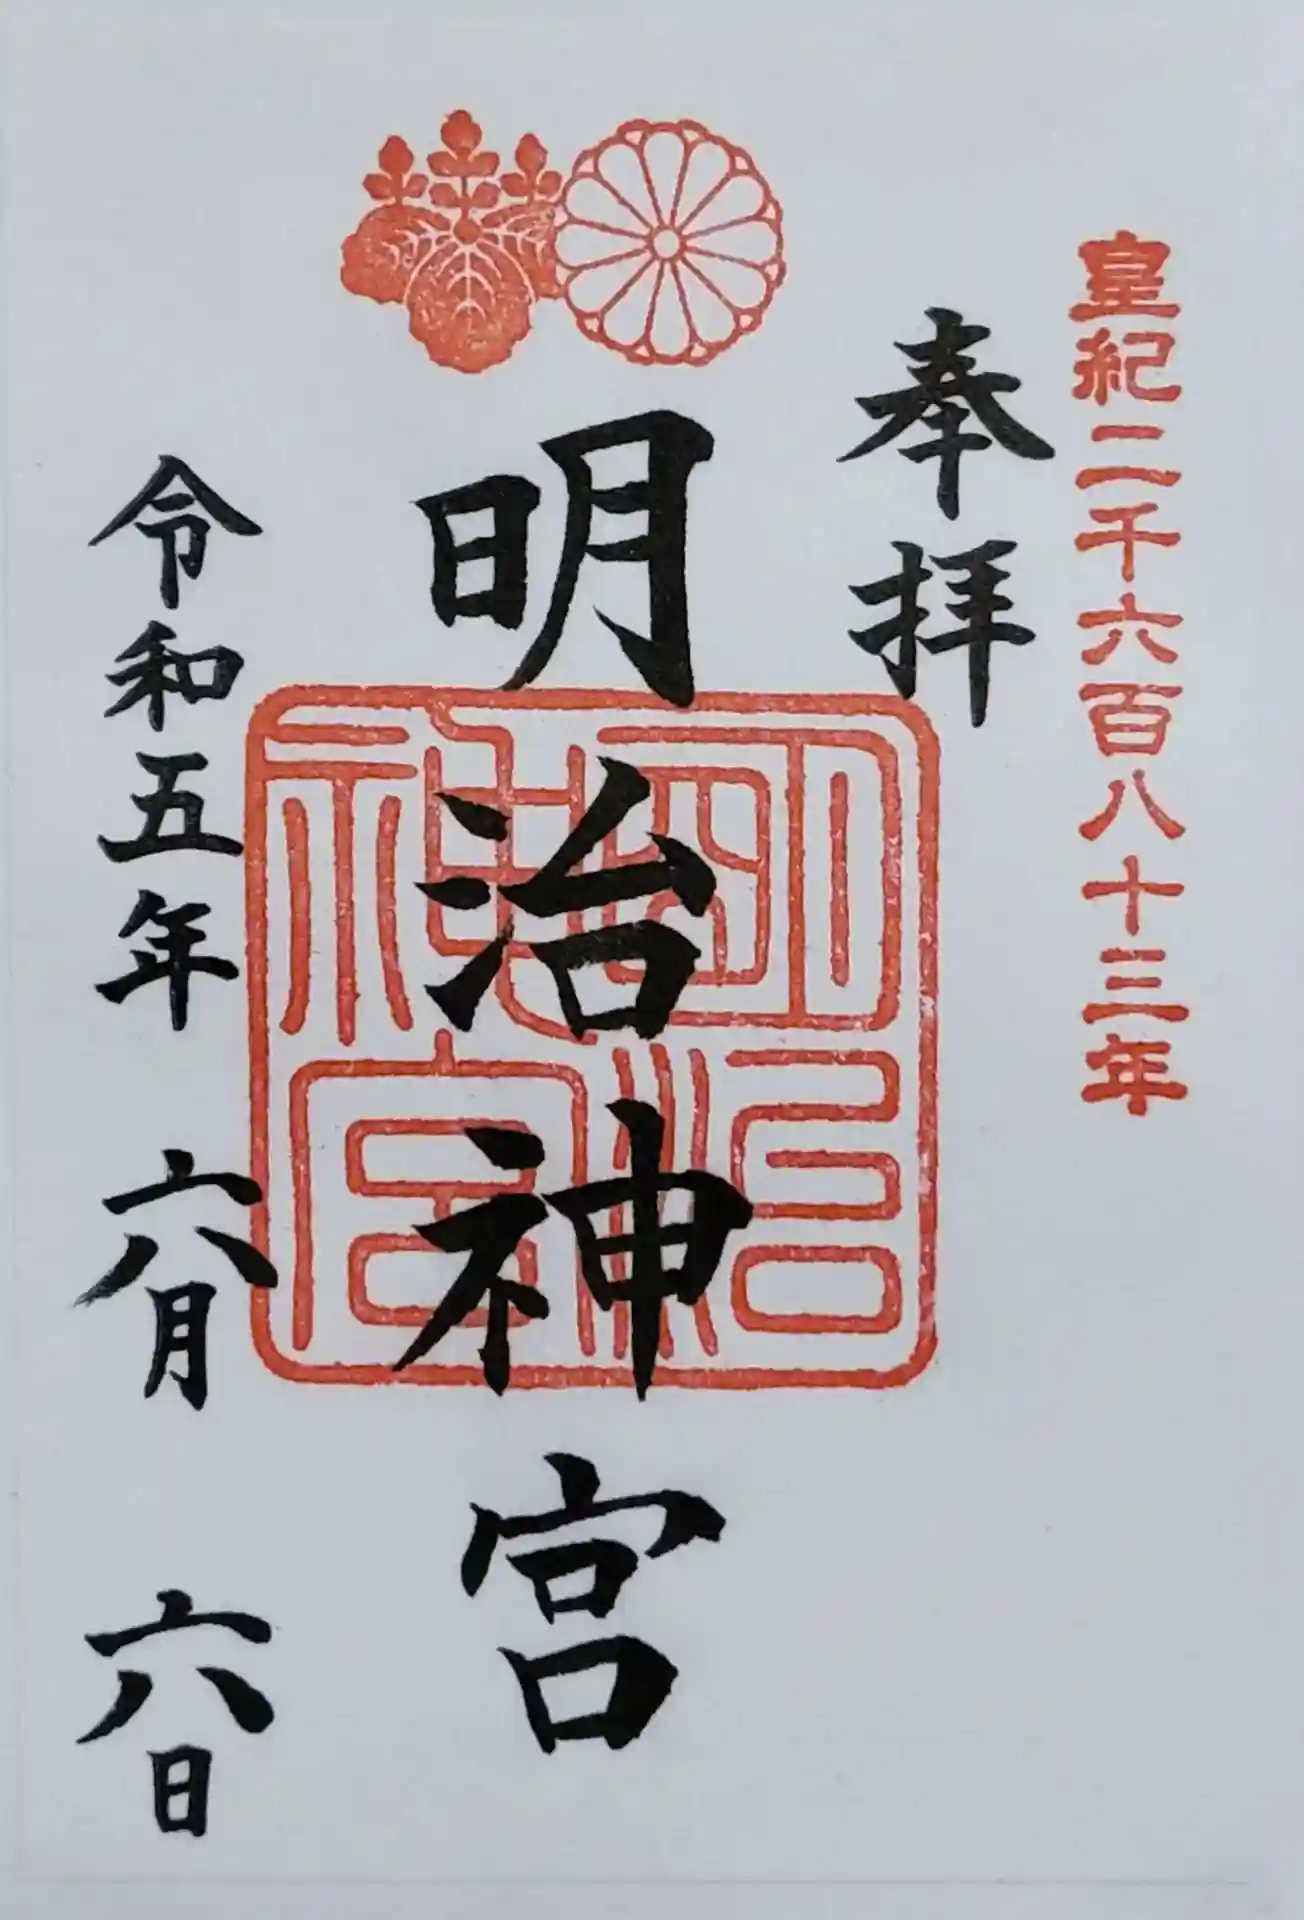 皇紀二千六百八十三年
奉拝
明治神宮
明治神宮
令和五年 六月 六日